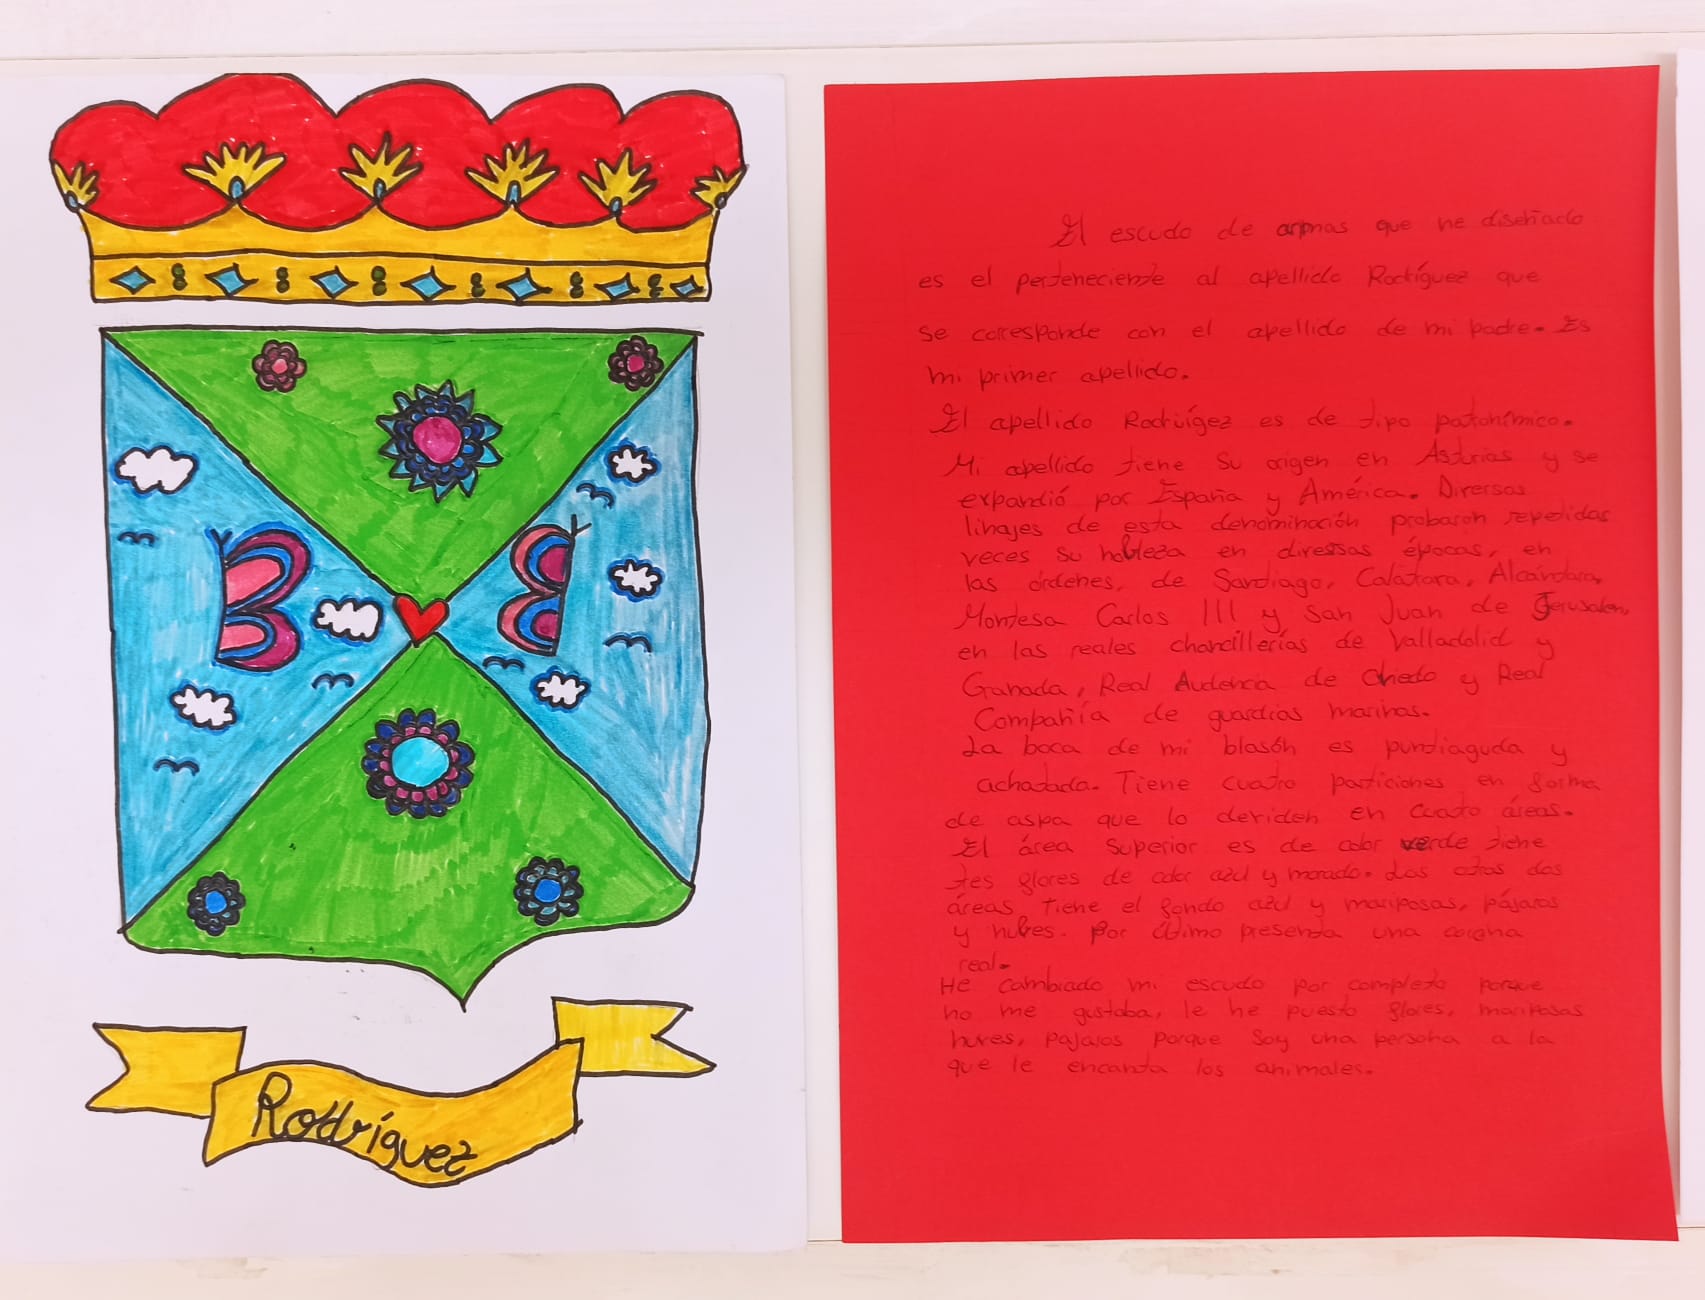 Rodríguez
El escudo de armas que he diseñado
es el perteneciente al apellido Rodríguez que
se corresponde con el apellido de mi padre. Es
mi primer apellido.
El apellido Rodruígez es de tipo patronímico.
Mi apellido tiene su origen en Asturias y se
expandió por España y América. Diversos
linajes de esta denominación probaron repetidas
veces su nobleza en diversas épocas, en
las órdenes, de Santiago, Calatrava, Alcántara,
Montesa Carlos III y San Juan de Jerusalen,
en las reales chancillerías de Valladolid y
Granada, Real Audencia de Oviedo y Real
Compañía de guardias marinas.
La boca de mi blasón es puntiaguda y
achatada. Tiene cuatro particiones en forma
de aspa que lo deviden en cuatro áreas.
El área superior es de color verde tiene
tres flores de color azul y morado. Las otras dos
áreas tiene el fondo azul y mariposas, pájaros
y nubes. Por último presenta una corona
real.
He cambiado mi escudo por completo porque
no me gustaba, le he puesto flores, mariposas
nuves, pajaros porque soy una persona a la
que le encanta los animales.